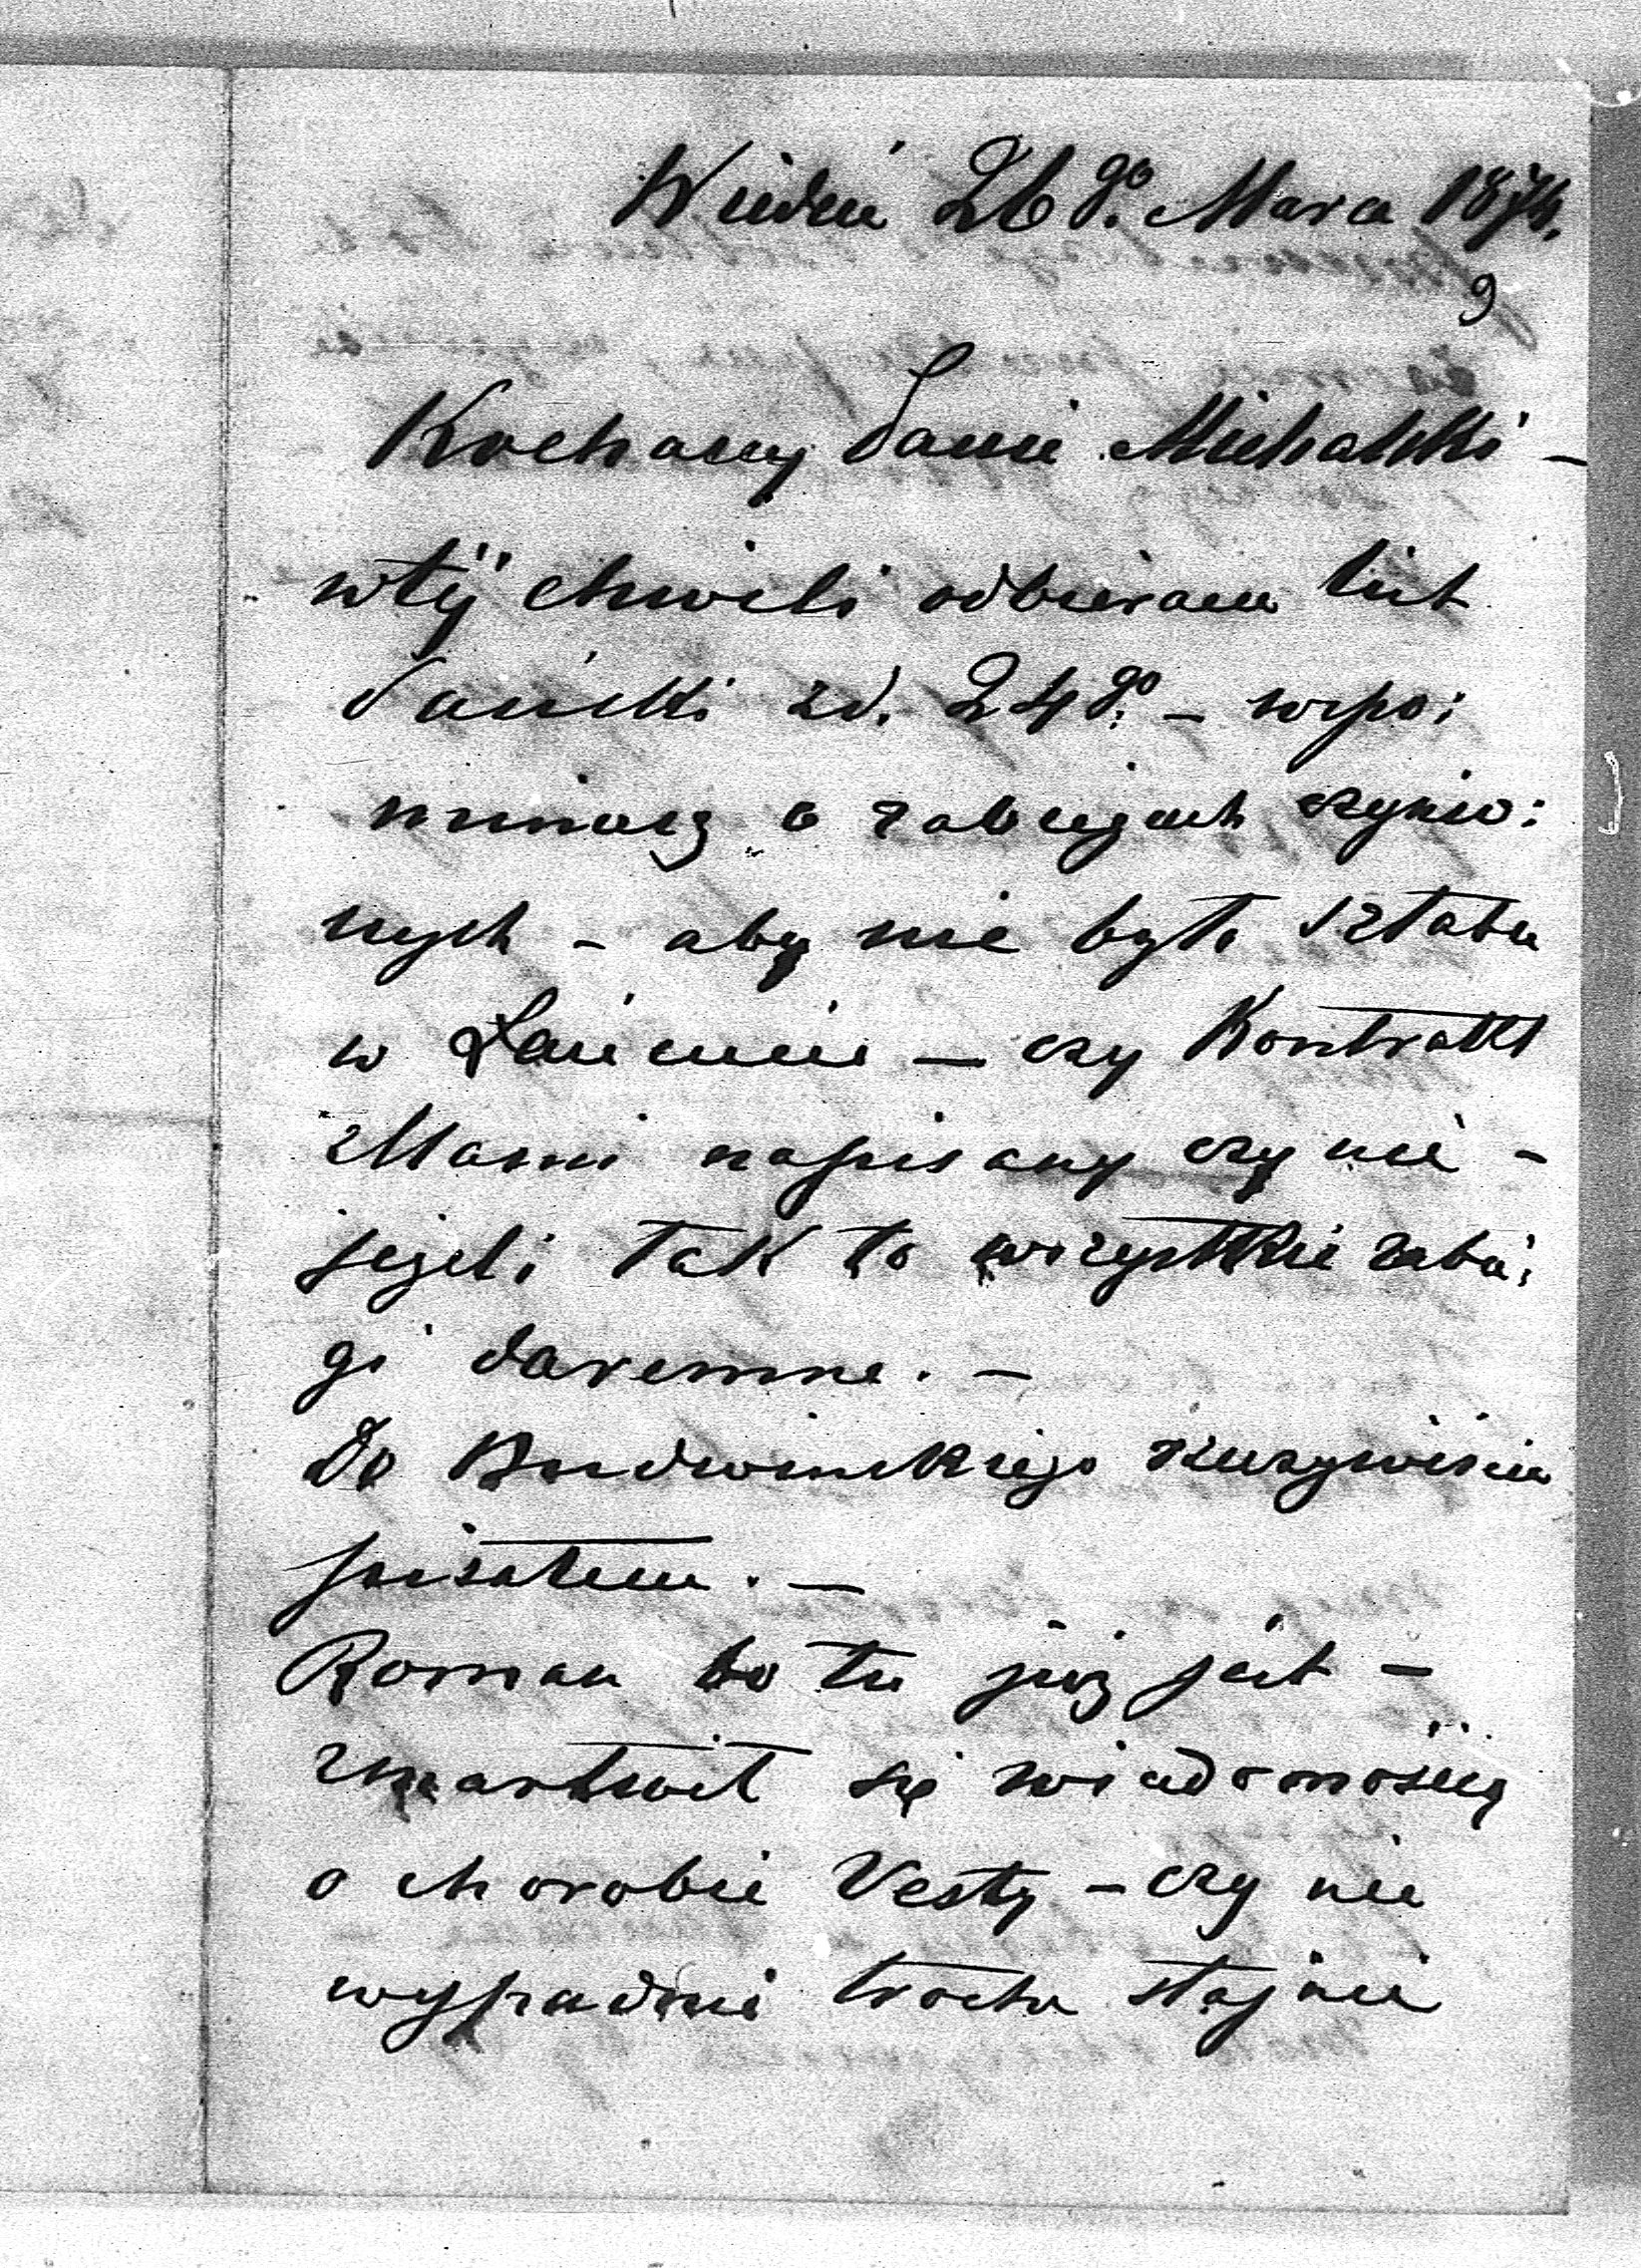 Wiedeń 26go Marca 1874.
9
Kochany Panie Michalski –
w tej chwili odbieram list
Pański z d. 24go – wspo:
minasz o zabiegach czynio:
nych – aby nie było sztabu
w Łańcucie – czy Kontrakt
z Mamą napisany czy nie –
jeżeli tak to wszystkie zabie:
gi daremne. –
Do Budwinskiego rzeczywiście
pisałem. –
Roman bo tu już jest –
zmartwił się wiadomością
o chorobie Vesty – czy nie
wypadnie trochę stajnie